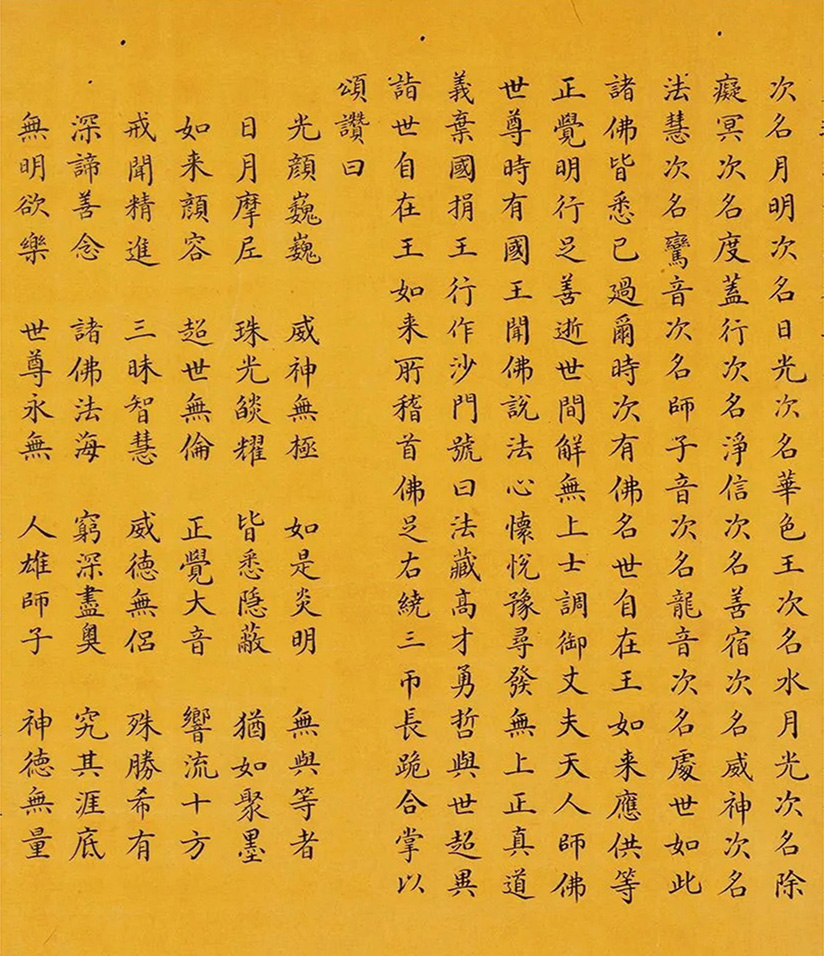 次名月明次名日光次名華色王次名水月光次名除
癡冥次名度蓋行次名淨信次名善宿次名威神次名
法慧次名鸞音次名師子音次名龍音次名處世如此
諸佛皆悉已過爾時次有佛名世自在王如来應供等
正覺明行足善逝世間解無上士調御丈夫天人師佛
世尊時有國王聞佛說法心懷悅豫尋發無上正真道
義棄國捐王行作沙門號曰法藏高才勇哲與世超異
詣世自在王如来所稽首佛足右繞三帀長跪合掌以
頌讚曰
光顔巍巍 威神無極 如是炎明 無與等者
日月摩尼 珠光燄耀 皆悉隠蔽 猶如聚墨
如来顔容 超世無倫 正覺大音 響流十方
戒聞精進 三昧智慧 威德無侶 殊勝希有
深諦善念 諸佛法海 窮深盡奧 究其涯底
無明欲樂 世尊永無 人雄師子 神德無量